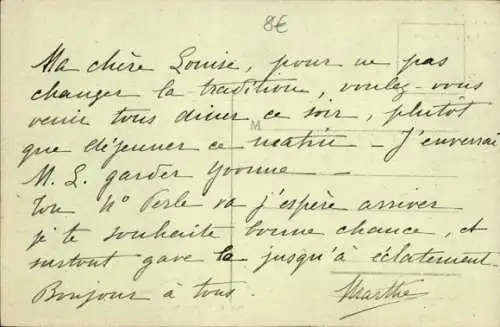 8€
Ma chère Louise, pour ne pas
changer la tradition, voulez-vous
venir tous diner ce soir, plutôt
M
que déjeuner ce matin – J'enverrai
M. L. garder Yvonne –
Ton N° Perle va j'espère arriver
je te souhaite bonne chance, et
surtout gave la jusqu'à éclatement.
Bonjour à tous.
Marthe